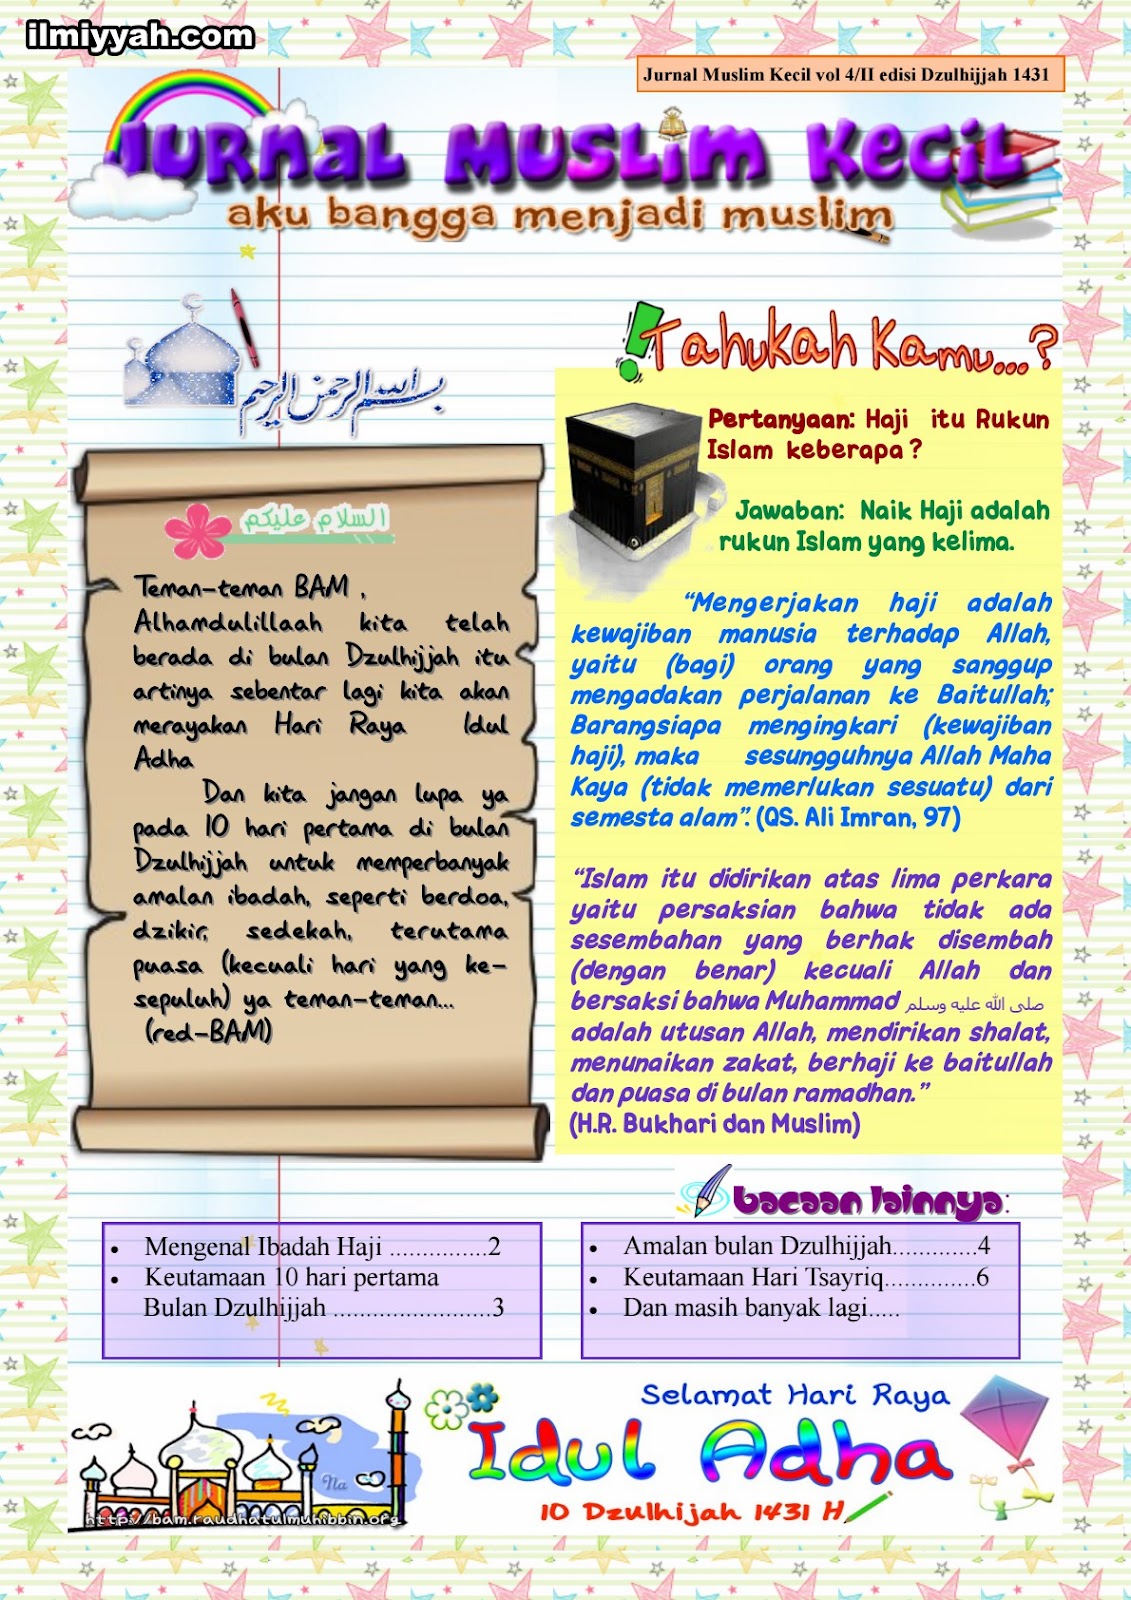 ilmiyyah.com
Jurnal Muslim Kecil vol 4/II edisi Dzulhijjah 1431
Jurnal Muslim Kecil
aku bangga menjadi muslim
بسم الله الرحمن الرحيم
السلام عليكم
Teman-teman BAM ,
Alhamdulillaah kita telah
berada di bulan Dzulhijjah itu
artinya sebentar lagi kita akan
merayakan Hari Raya Idul
Adha
Dan kita jangan lupa ya
pada 10 hari pertama di bulan
Dzulhijjah untuk memperbanyak
amalan ibadah, seperti berdoa,
dzikir, sedekah, terutama
puasa (kecuali hari yang ke-
sepuluh) ya teman-teman...
(red-BAM)
Tahukah Kamu...?
Pertanyaan: Haji itu Rukun
Islam keberapa ?
Jawaban: Naik Haji adalah
rukun Islam yang kelima.
“Mengerjakan haji adalah
kewajiban manusia terhadap Allah,
yaitu (bagi) orang yang sanggup
mengadakan perjalanan ke Baitullah;
Barangsiapa mengingkari (kewajiban
haji), maka sesungguhnya Allah Maha
Kaya (tidak memerlukan sesuatu) dari
semesta alam”. (QS. Ali Imran, 97)
“Islam itu didirikan atas lima perkara
yaitu persaksian bahwa tidak ada
sesembahan yang berhak disembah
(dengan benar) kecuali Allah dan
bersaksi bahwa Muhammad صلى الله عليه وسلم
adalah utusan Allah, mendirikan shalat,
menunaikan zakat, berhaji ke baitullah
dan puasa di bulan ramadhan.”
(H.R. Bukhari dan Muslim)
bacaan lainnya:
• Mengenal Ibadah Haji ...............2
• Keutamaan 10 hari pertama
Bulan Dzulhijjah ........................3
• Amalan bulan Dzulhijjah.............4
• Keutamaan Hari Tsayriq..............6
• Dan masih banyak lagi.....
Selamat Hari Raya
Idul Adha
10 Dzulhijah 1431 H
Na
http://bam.raudhatulmuhibbin.org